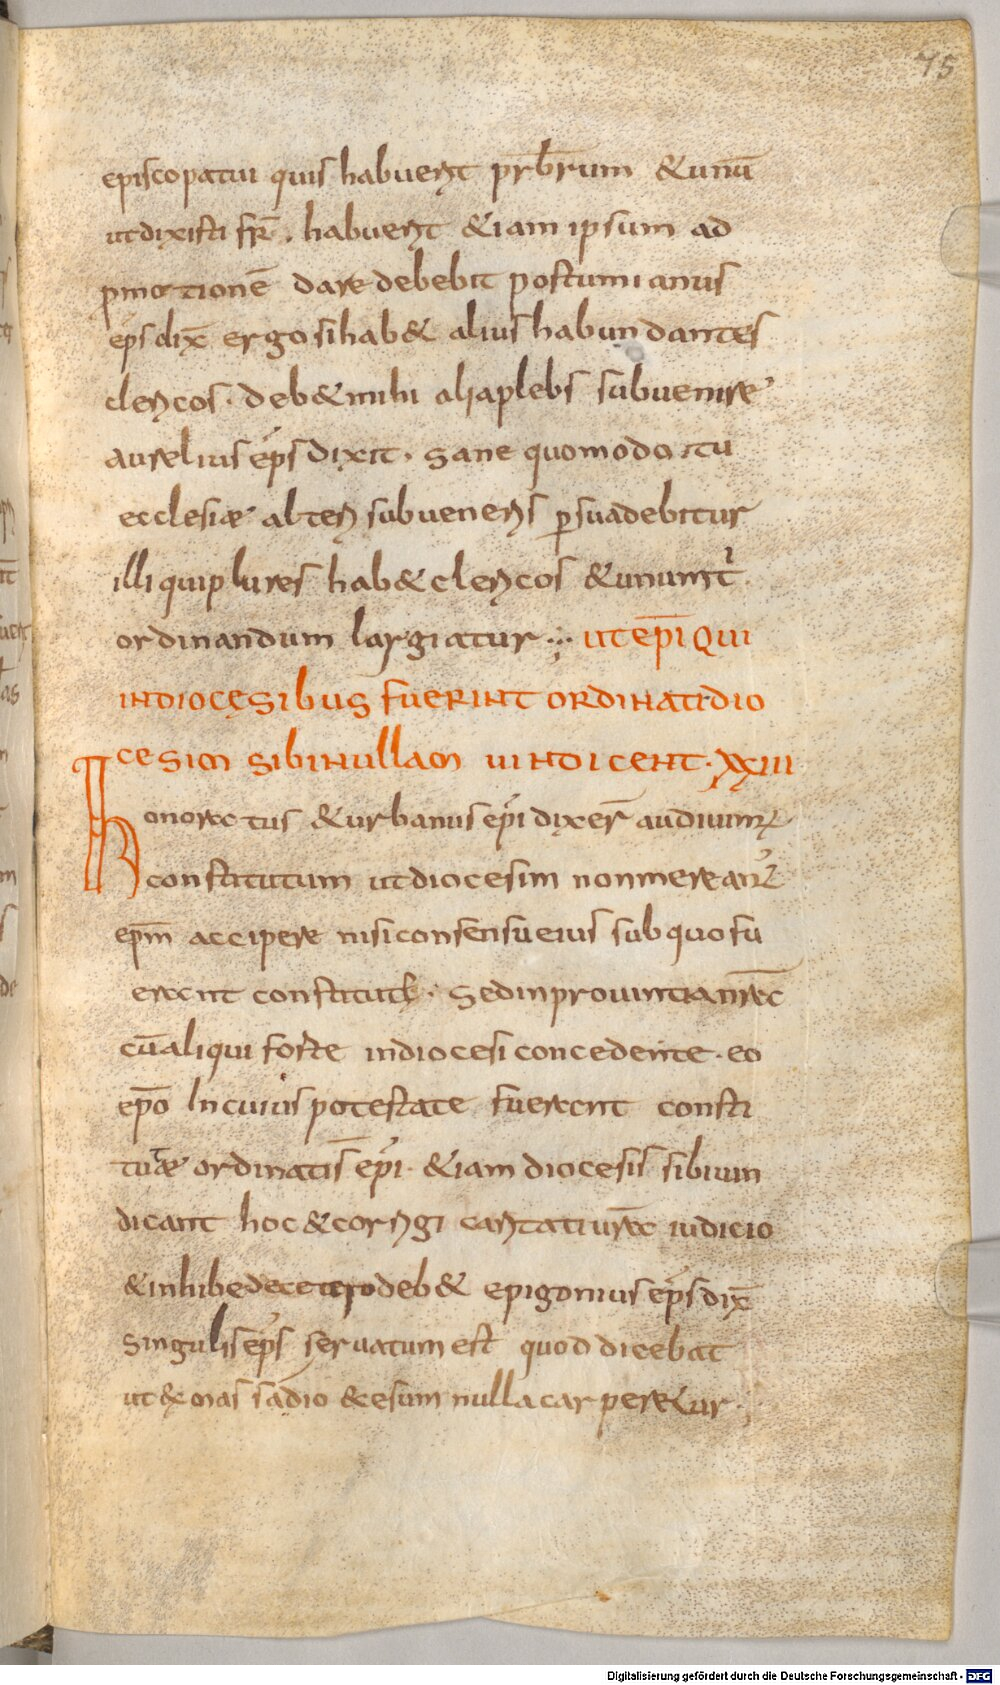 75
episcopatui quis habuerit prƀrum & unū
ut dixisti fr̄. habuerit &iam ipsum ad
promotionē dare debebit postumianus
ep̄s dix̄ ergo si hab& alius habundantes
clericos. deb& mihi alia plebs subuenire
aurelius ep̄s dixit. sane quomodo tu
ecclesiae alteri subueneris persuadebitur
illi qui plures hab& clericos & unum t'
ordinandum largiatur ut ep̄i qui
in diocęsibus fuerint ordinati dio
cesim sibi nullam uindicent. xxiii
Honoratus & urbanus ep̄i dixer̄ audiuim'
constitutum ut diocesim non mereant'
ep̄m accipere nisi consensu eius sub quo fu
erant constitutę. Sed in prouintia nr̄a
cū aliqui forte in diocesi concedente. eo
ep̄o In cuius potestate fuerant consti
tutae ordinatis ep̄i. &iam diocesis sibi uin
dicant hoc & corrigi caritati ur̄ae iudicio
& inhibe de cetero deb& epigonius ep̄s dix̄
Singulis ep̄is seruatum est quod dicebat
ut & mas sa dio &esum nulla carperetur.
Digitalisierung gefördert durch die Deutsche Forschungsgemeinschaft - DFG